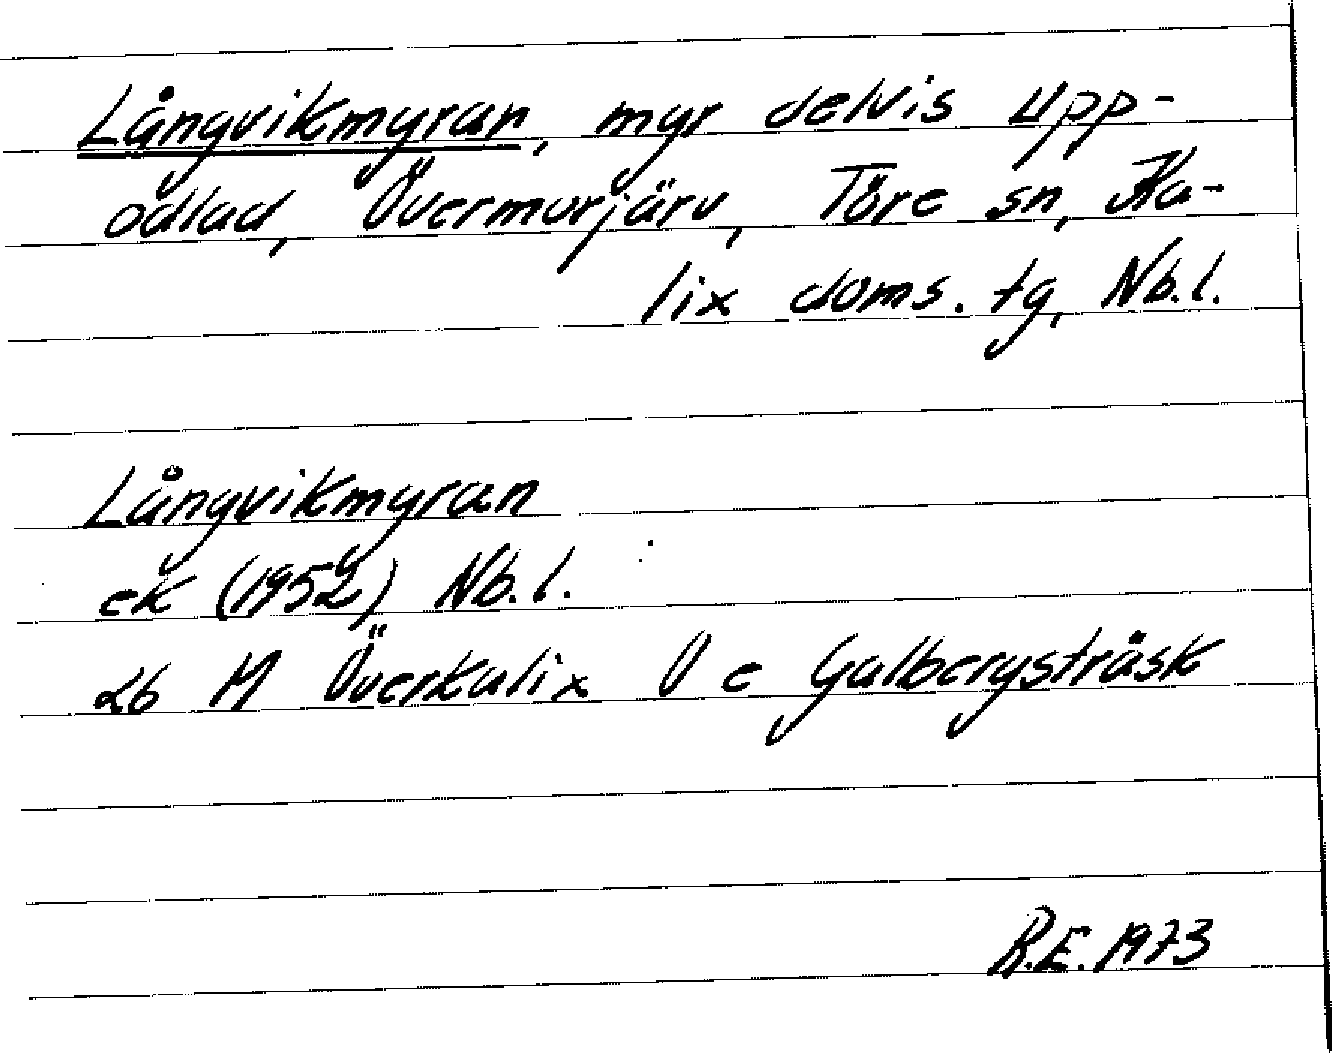 Långvikmyran, myr delvis upp-
odlad, Övermorjärv, Töre sn, Ka-
lix doms. tg, Nb.l.
Långvikmyran
ek (1952) Nb.l.
26 M Överkalix Ö e Galbergsträsk
R.E. 1973